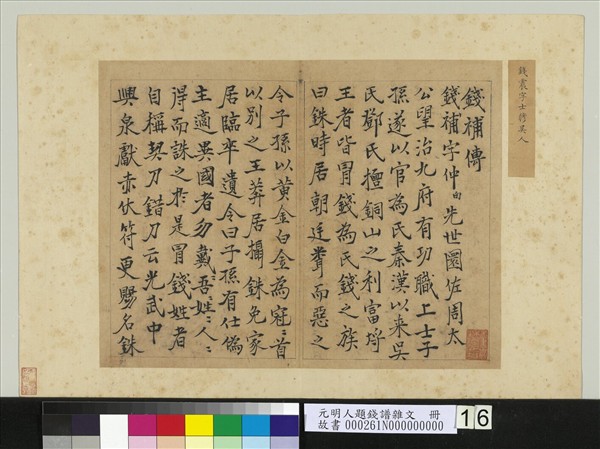 錢震字士蔣吳人
錢補傳
錢補字仲由先世圜佐周太
公望治九府有功職上士子
孫遂以官為氏秦漢以來吳
氏鄧氏擅銅山之利富埒
王者皆冐錢為氏錢之族
曰銖時居朝廷聾而惡之
令子孫以黃金白金為冠〻首
以別之王莽居攝銖免家
居臨卒遺令曰子孫有仕僞
主適異國者勿戴吾姓〻人〻
得而誅之於是冐錢姓者
自稱契刀錯刀云光武中
興泉獻赤伏符更賜名銖
元明人題錢譜雜文 冊
故書 000261N000000000
16